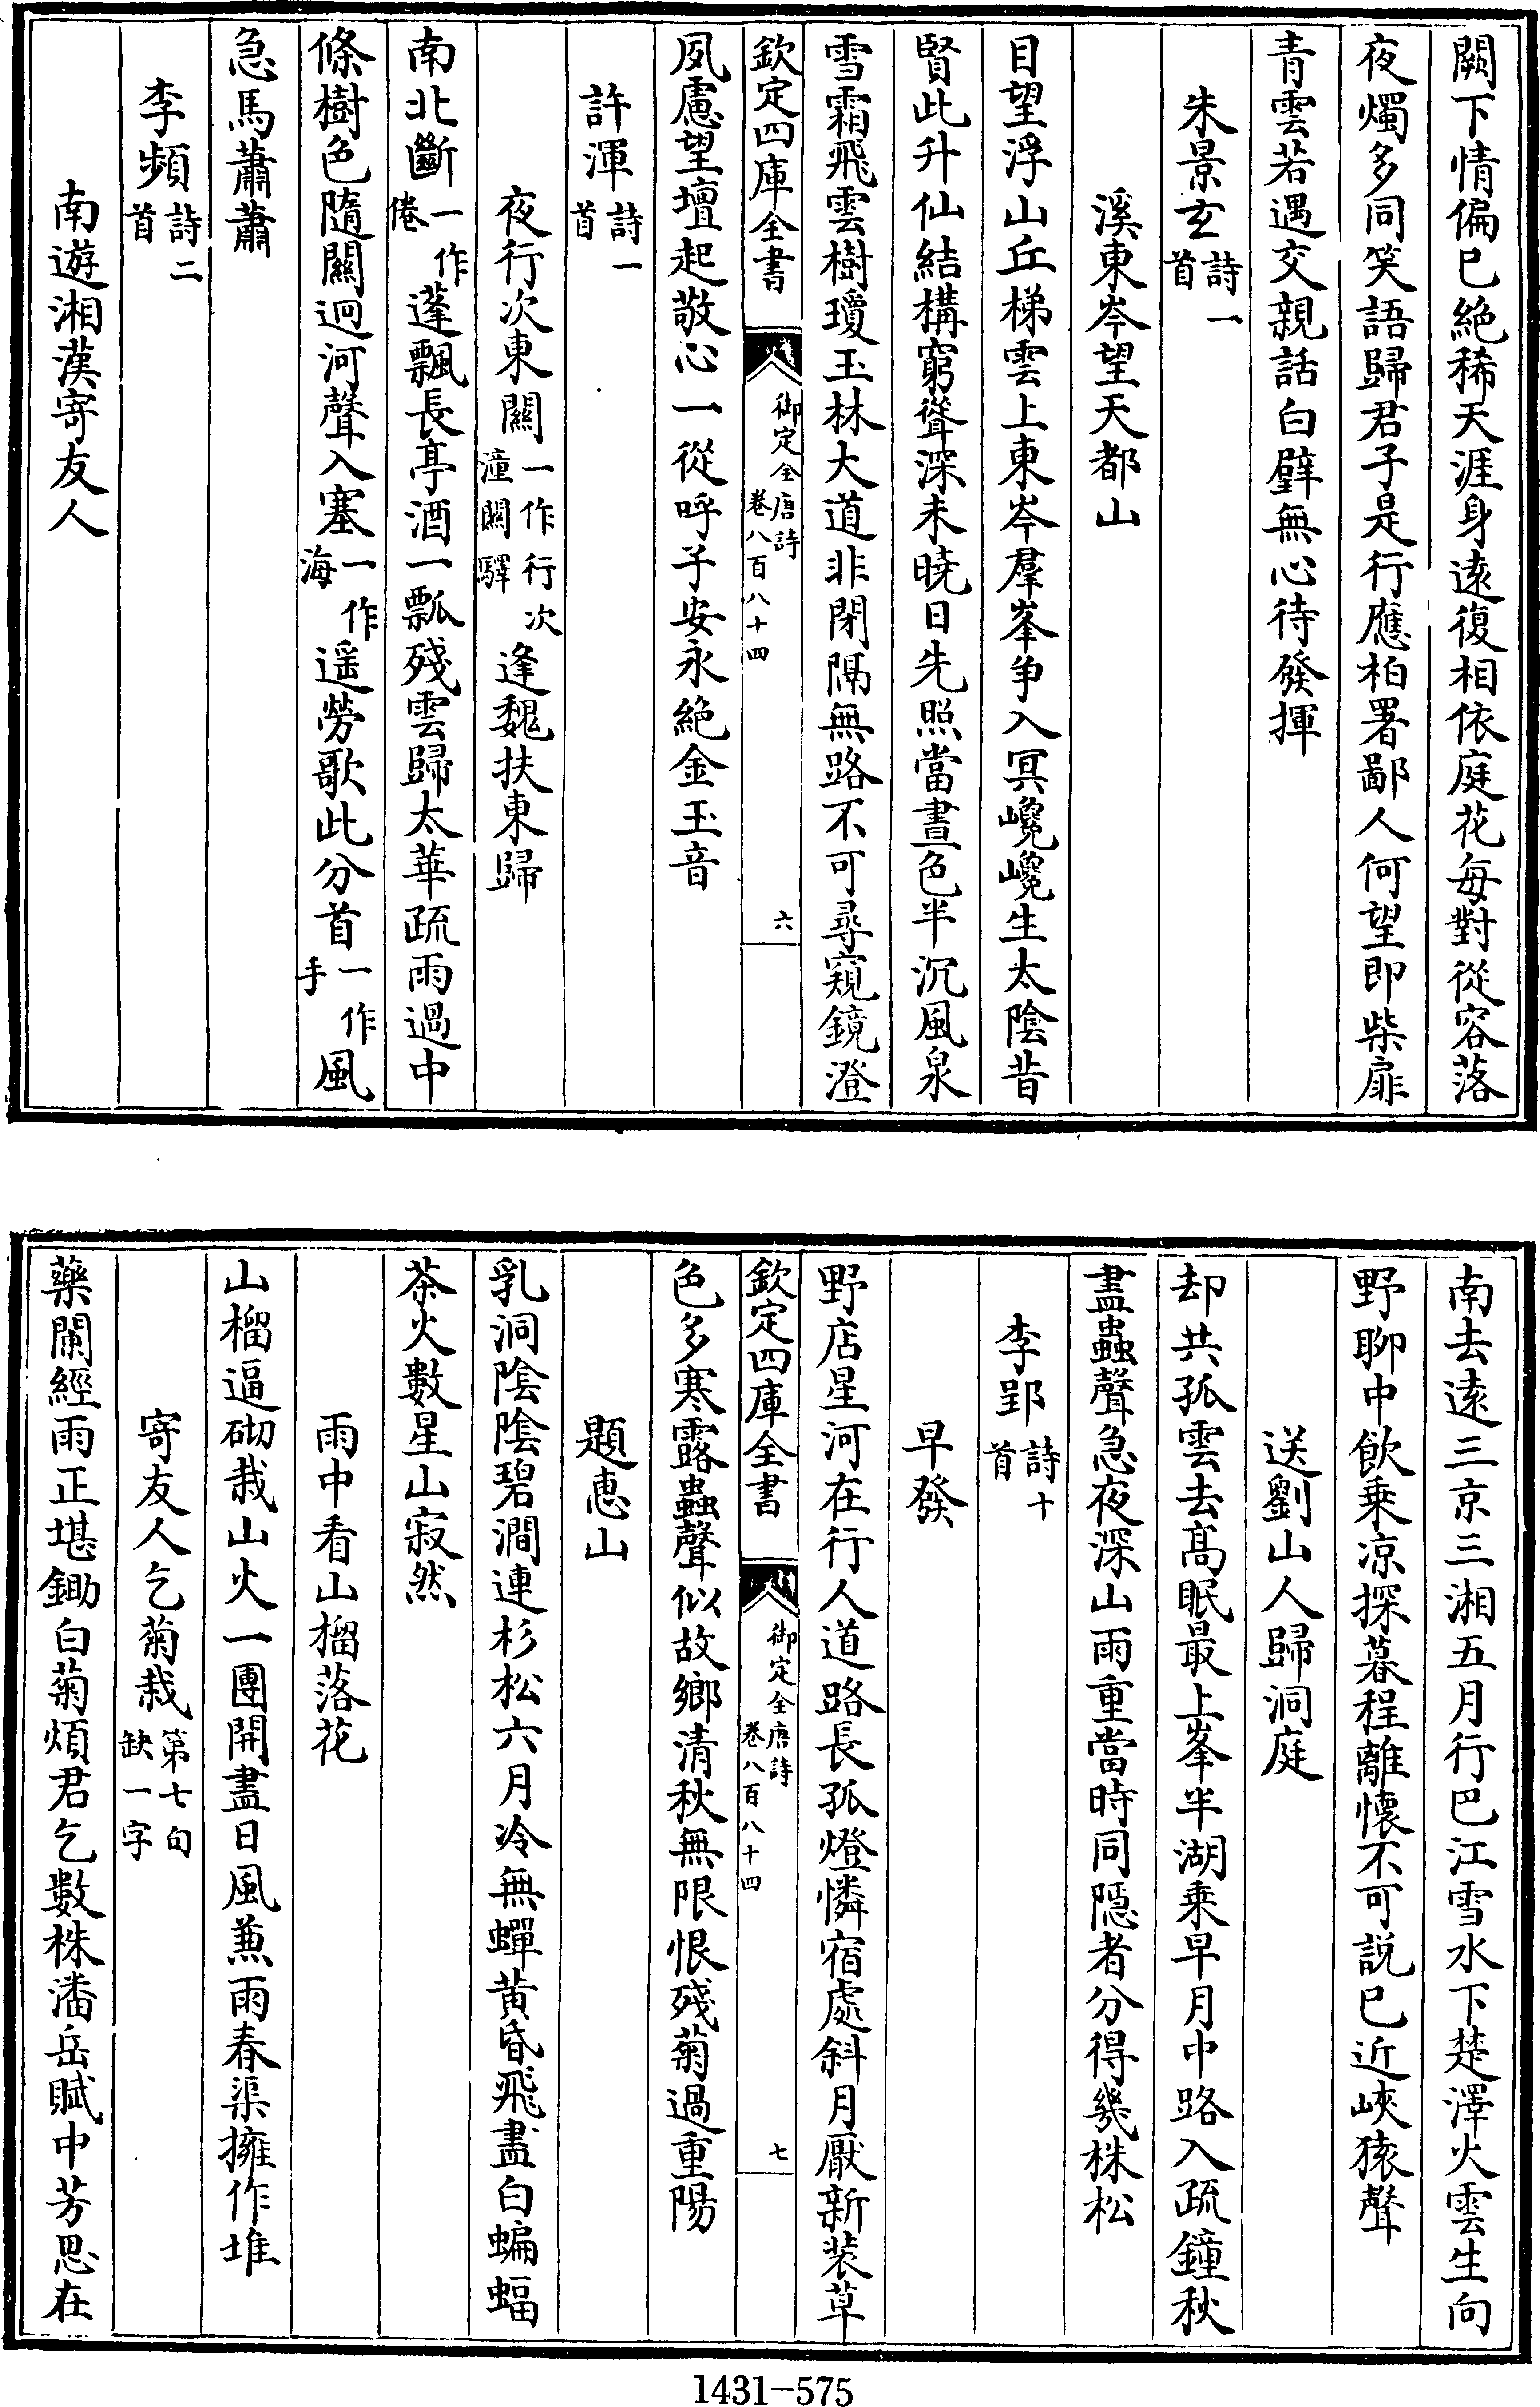 闕下情偏已絶稀天涯身逺復相依庭花每對從容落
夜燭多同笑語歸君子是行應柏署鄙人何望即柴扉
青雲若遇交親話白璧無心待發揮
朱景玄詩一首
溪東岑望天都山
目望浮山丘梯雲上東岑羣峯争入冥巉巉生太隂昔
賢此升仙結構窮聳深未曉日先照當晝色半沉風泉
雪霜飛雲樹瓊玉林大道非閉隔無路不可尋窺鏡澄
欽定四庫全書 御定全唐詩 卷八百八十四 六
夙慮望壇起敬心一從呼子安永絶金玉音
許渾詩一首
夜行次東關一作行次潼關驛逢魏扶東歸
南北斷一作倦蓬飄長亭酒一瓢殘雲歸太華疏雨過中
條樹色隨關迥河聲入塞一作海遥勞歌此分首一作手風
急馬蕭蕭
李頻詩二首
南遊湘漢寄友人
南去逺三京三湘五月行巴江雪水下楚澤火雲生向
野聊中飲乗凉探暮程離懷不可説已近峽猿聲
送劉山人歸洞庭
却共孤雲去髙眠最上峯半湖乗早月中路入疏鐘秋
盡蟲聲急夜深山雨重當時同隱者分得幾株松
李郢詩十首
早發
野店星河在行人道路長孤燈憐宿處斜月厭新装草
色多寒露蟲聲似故鄉清秋無限恨殘菊過重陽
題惠山
乳洞隂隂碧澗連杉松六月冷無蟬黄昏飛盡白蝙蝠
茶火數星山寂然
雨中看山榴落花
山榴逼砌栽山火一團開盡日風兼雨春渠擁作堆
寄友人乞菊栽第七句缺一字
藥闌經雨正堪鋤白菊煩君乞數株潘岳賦中芳思在
1431-575